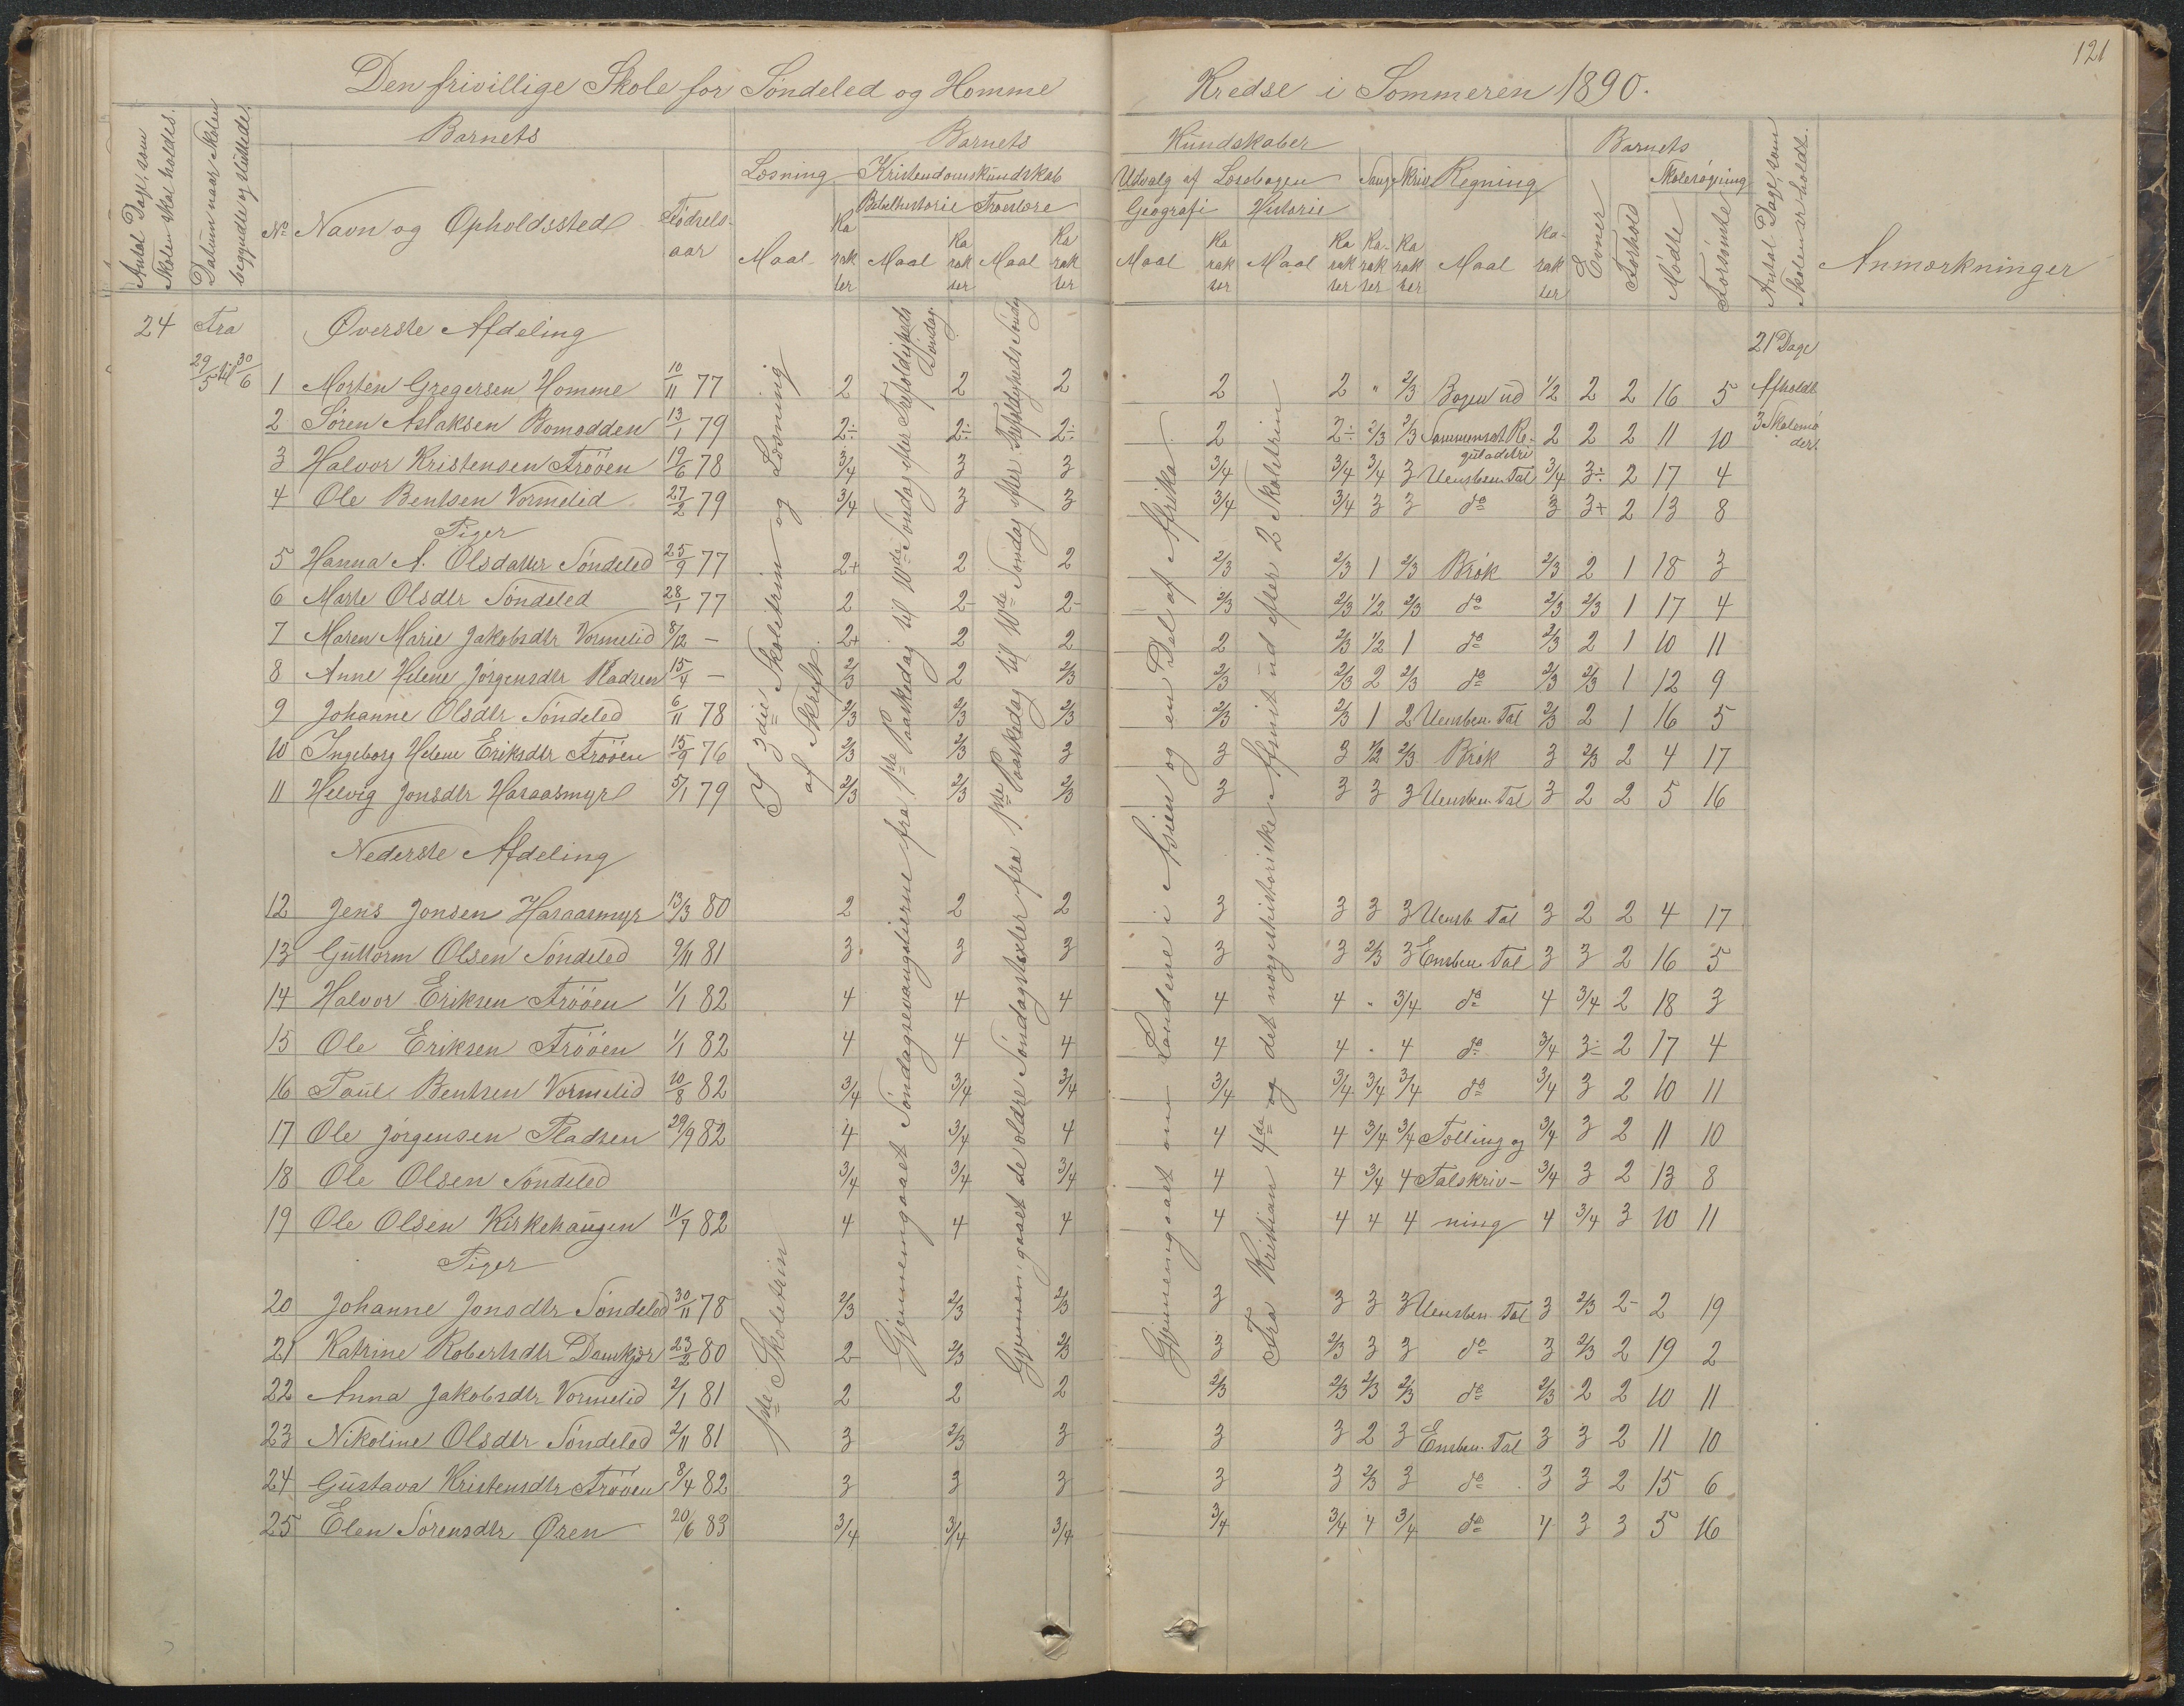 121
Den frivillige Skole for Söndeled og Homme Kredse i Sommeren 1890.
Antal Dage, som Skolen skal holdes.
Datum naar Skolen begyndte og sluttede.
Barnets
Barnets
Kundskaber
Barnets
Antal Dage, som Skolen er holdt.
Læsning Kristendomskundskab Udvalg af Læsebogen Sang Skriv Regning Skolesøgning
Bibelhistorie Troeslære Geografi Historie
No Navn og Opholdssted Fødselsaar Maal Karakter Maal Karakter Maal Karakter Maal Karakter Maal Karakter Karakter Karakter Maal Karakter Evner Forhold Mødte Forsømte Anmærkninger
24 Fra 29/5 til 30/6
Øverste Afdeling
21 Dage
Afholdt
3 Skolemöder.
I 3die Skoletrin og Læsning af Skrift.
1ste Skoletrin
Gjennemgaaet Søndagsevangelierne fra 1ste Paaskedag til 10de Søndag efter Trefoldigheds Søndag.
Gjennemgaaet de ældre Søndagstexter fra 1ste Paaskedag til 10de Søndag efter Trefoldigheds Søndag
Gjennemgaaet om Landene i Asien og en Del af Afrika.
Fra Kristian 4de og det norgeshistoriske Afsnit ud efter 2 Skoletrin
1 Morten Gregersen Homme 10/11 77 2 2 2 2 2 " 2/3 Bogen ud 1/2 2 2 16 5
2 Sören Aslaksen Bomodden 13/1 79 2÷ 2÷ 2÷ 2 2÷ 2/3 2/3 Sammensat Reguladetri 2 2 2 11 10
3 Halvor Kristensen Trööen 19/6 78 3/4 3 3 3/4 3/4 3/4 3 Uensben. Tal 3/4 3÷ 2 17 4
4 Ole Bentsen Vormelid 27/2 79 3/4 3 3 3/4 3/4 3 3 do 3 3+ 2 13 8
Piger
5 Hanna A. Olsdatter Söndeled 25/9 77 2+ 2 2 2/3 2/3 1 2/3 Brök 2/3 2 1 18 3
6 Marte Olsdtr Söndeled 28/1 77 2 2- 2- 2/3 2/3 1/2 2/3 do 2/3 2/3 1 17 4
7 Maren Marie Jakobsdtr Vormelid 8/12 – 2+ 2 2 2 2/3 1/2 1 do 2/3 2 1 10 11
8 Anne Helene Jörgensdtr Pladsen 15/4 – 2/3 2 2/3 2/3 2/3 2 2/3 do 2/3 2/3 1 12 9
9 Johanne Olsdtr Söndeled 6/11 78 2/3 2/3 2/3 2/3 2/3 1 2 Uensben. Tal 2/3 2 1 16 5
10 Ingeborg Helene Eriksdtr Trööen 15/9 76 2/3 2/3 3 3 3 1/2 2/3 Brök 3 2/3 2 4 17
11 Helvig Jonsdtr Haraasmyr 5/1 79 2/3 2/3 2/3 3 3 3 3 Uensben. Tal 3 2 2 5 16
Nederste Afdeling
12 Jens Jonsen Haraasmyr 13/3 80 2 2 2 3 3 3 3 Uensb. Tal 3 2 2 4 17
13 Guttorm Olsen Söndeled 9/11 81 3 3 3 3 3 2/3 3 Ensben. Tal 3 3 2 16 5
14 Halvor Eriksen Trööen 1/1 82 4 4 4 4 4 " 3/4 do 4 3/4 2 18 3
15 Ole Eriksen Trööen 1/1 82 4 4 4 4 4 " 4 do 3/4 3÷ 2 17 4
16 Paul Bentsen Vormelid 10/8 82 3/4 3/4 3/4 3/4 3/4 3/4 3/4 do 3/4 3 2 10 11
17 Ole Jörgensen Pladsen 29/9 82 4 3/4 4 4 4 3/4 3/4 Tælling og 3/4 3 2 11 10
18 Ole Olsen Söndeled 3/4 3/4 3/4 4 4 3/4 4 Talskriv- 3/4 3 2 13 8
19 Ole Olsen Kirkehaugen 11/7 82 4 4 4 4 4 4 4 ning 4 3/4 3 10 11
Piger
20 Johanne Jonsdtr Söndeled 30/11 78 2/3 2/3 2/3 3 3 3 3 Uensben. Tal 3 2/3 2- 2 19
21 Katrine Robertsdtr 23/2 80 2- 2/3 2/3 3 2/3 3 3 do 3 2/3 2 19 2
22 Anna Jakobsdtr Vormelid 2/1 81 2 2 2 2/3 2/3 2/3 2/3 do 2/3 2 2 10 11
23 Nikoline Olsdtr Söndeled 2/11 81 3 2/3 3 3 3 2 3 Ensben. Tal 3 3 2 11 10
24 Gustava Kristensdtr Trööen 8/4 82 3 3 3 3 3 2/3 3 do 3 3 2 15 6
25 Elen Sörensdtr Øren 20/6 83 3/4 3/4 3/4 3/4 3/4 4 3/4 do 4 3 3 5 16